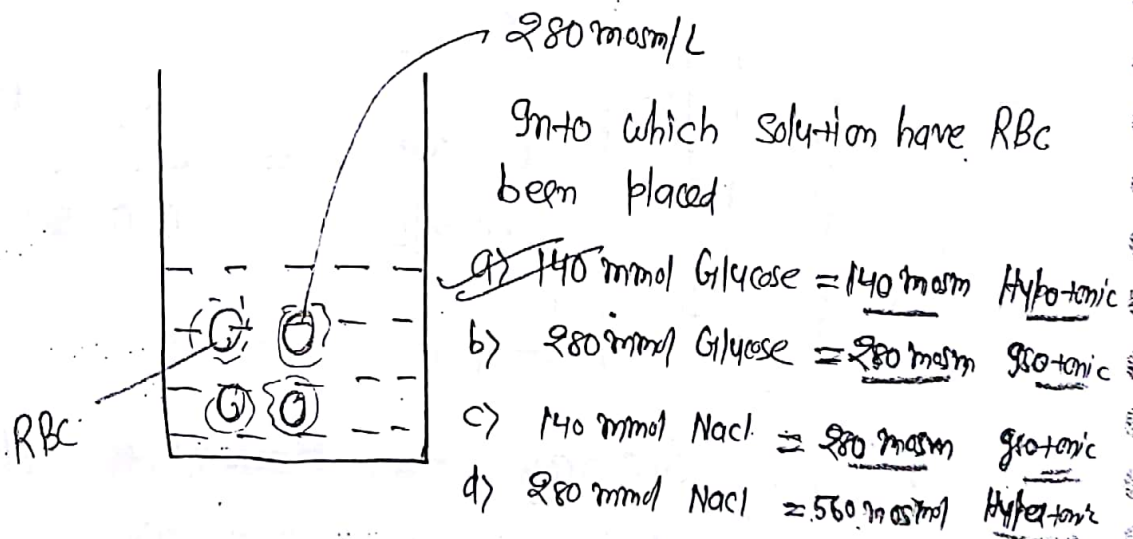 280 mosm/L
Into which solution have RBC
been placed
a) 140 mmol Glucose = 140 mosm Hypotonic
b) 280 mmol Glucose = 280 mosm Isotonic
c) 140 mmol Nacl = 280 mosm Isotonic
d) 280 mmol Nacl = 560 mosmol Hypertonic
RBC